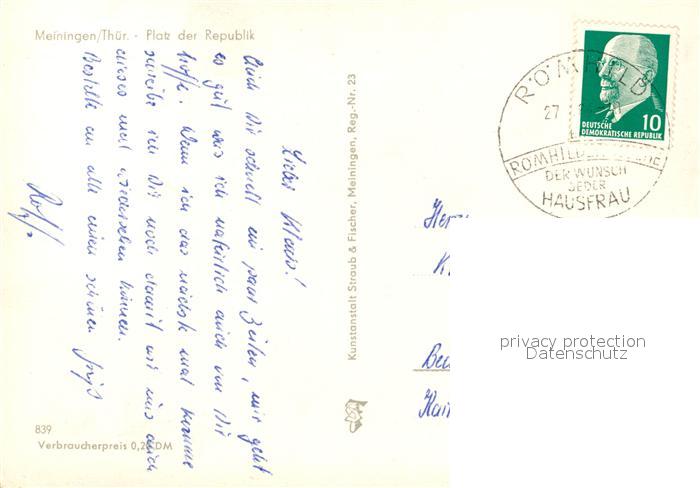 Meiningen/Thür. - Platz der Republik
Lieber Klaus!
Auch Dir schnell ein paar Zeilen, mir geht
es gut was ich natürlich auch von Dir
hoffe. Wenn ich das nächste mal komme
schreibe ich Dir noch damit wir uns auch
dieses mal wiedersehen können.
Bestelle an alle einen schönen Gruß
839
Verbraucherpreis 0,20 DM
Kunstanstalt Straub & Fischer, Meiningen, Reg.-Nr. 23
RÖMHILD
27
DEUTSCHE
DEMOKRATISCHE REPUBLIK
10
DER WUNSCH
JEDER
HAUSFRAU
Her
K
privacy protection
Datenschutz